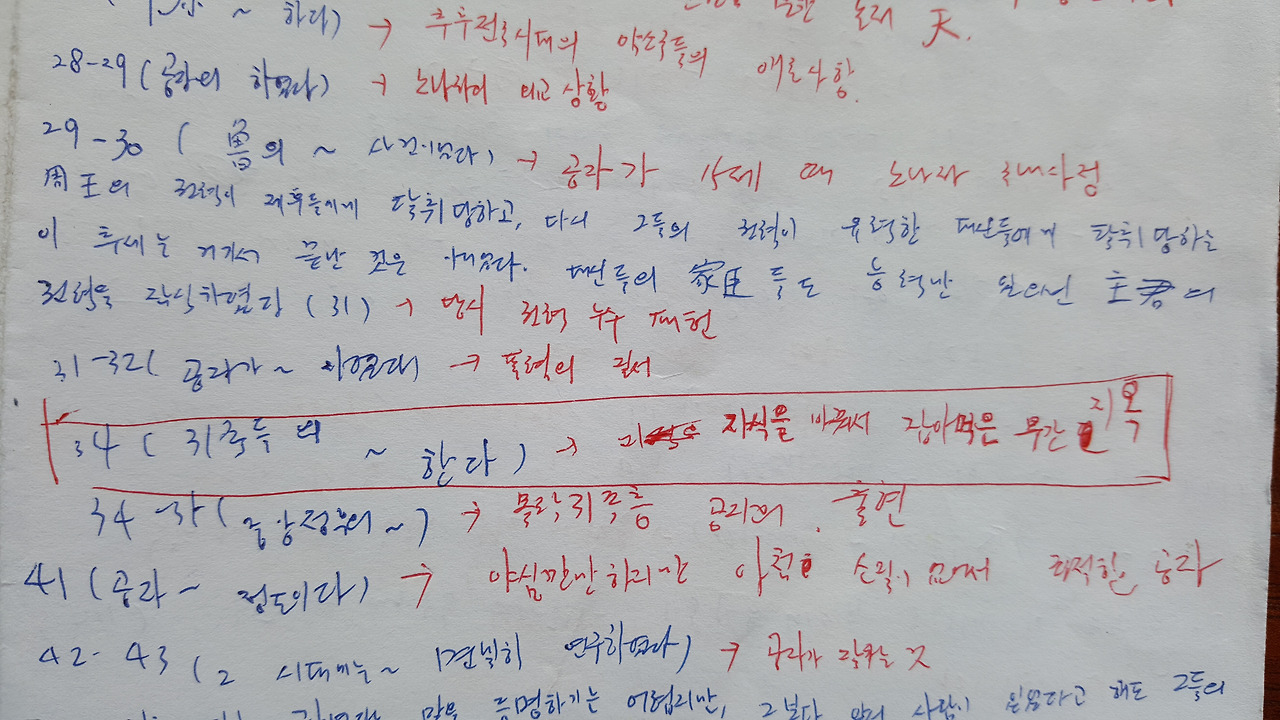 ~ 하다) → 춘추전국시대의 약소국들의 애로사항. 天.
28-29 (공자의 하였다) → 노나라의 외교상황
29-30 ( 魯의 ~ 사건이었다) → 공자가 15세 때 노나라 국내사정
周王의 권력이 제후들에게 탈취당하고, 다시 그들의 권력이 유력한 대신들에게 탈취당하는
이 추세는 거기서 끝난 것은 아니었다. 대신들의 家臣들도 능력만 있다면 主君의
권력을 잠식하였다 (31) → 당시 권력 누수 재현
31-32( 공자가 ~ 이었다) → 폭력의 질서
34 ( 귀족들의 ~ 한다) → 자식을 바꿔서 잡아먹은 무간지옥
34-35 (중앙정부의 ~ ) → 몰락귀족층 공자의 출현
41 (공자 ~ 정도이다) → 야심만만하지만 아첨 공자
42-43 (그 시대에는 ~ 면밀히 연구하였다) → 공자가 잘하는 것
말을 증명하기는 어렵지만, 그보다 사람이 있었다고 해도 그들의